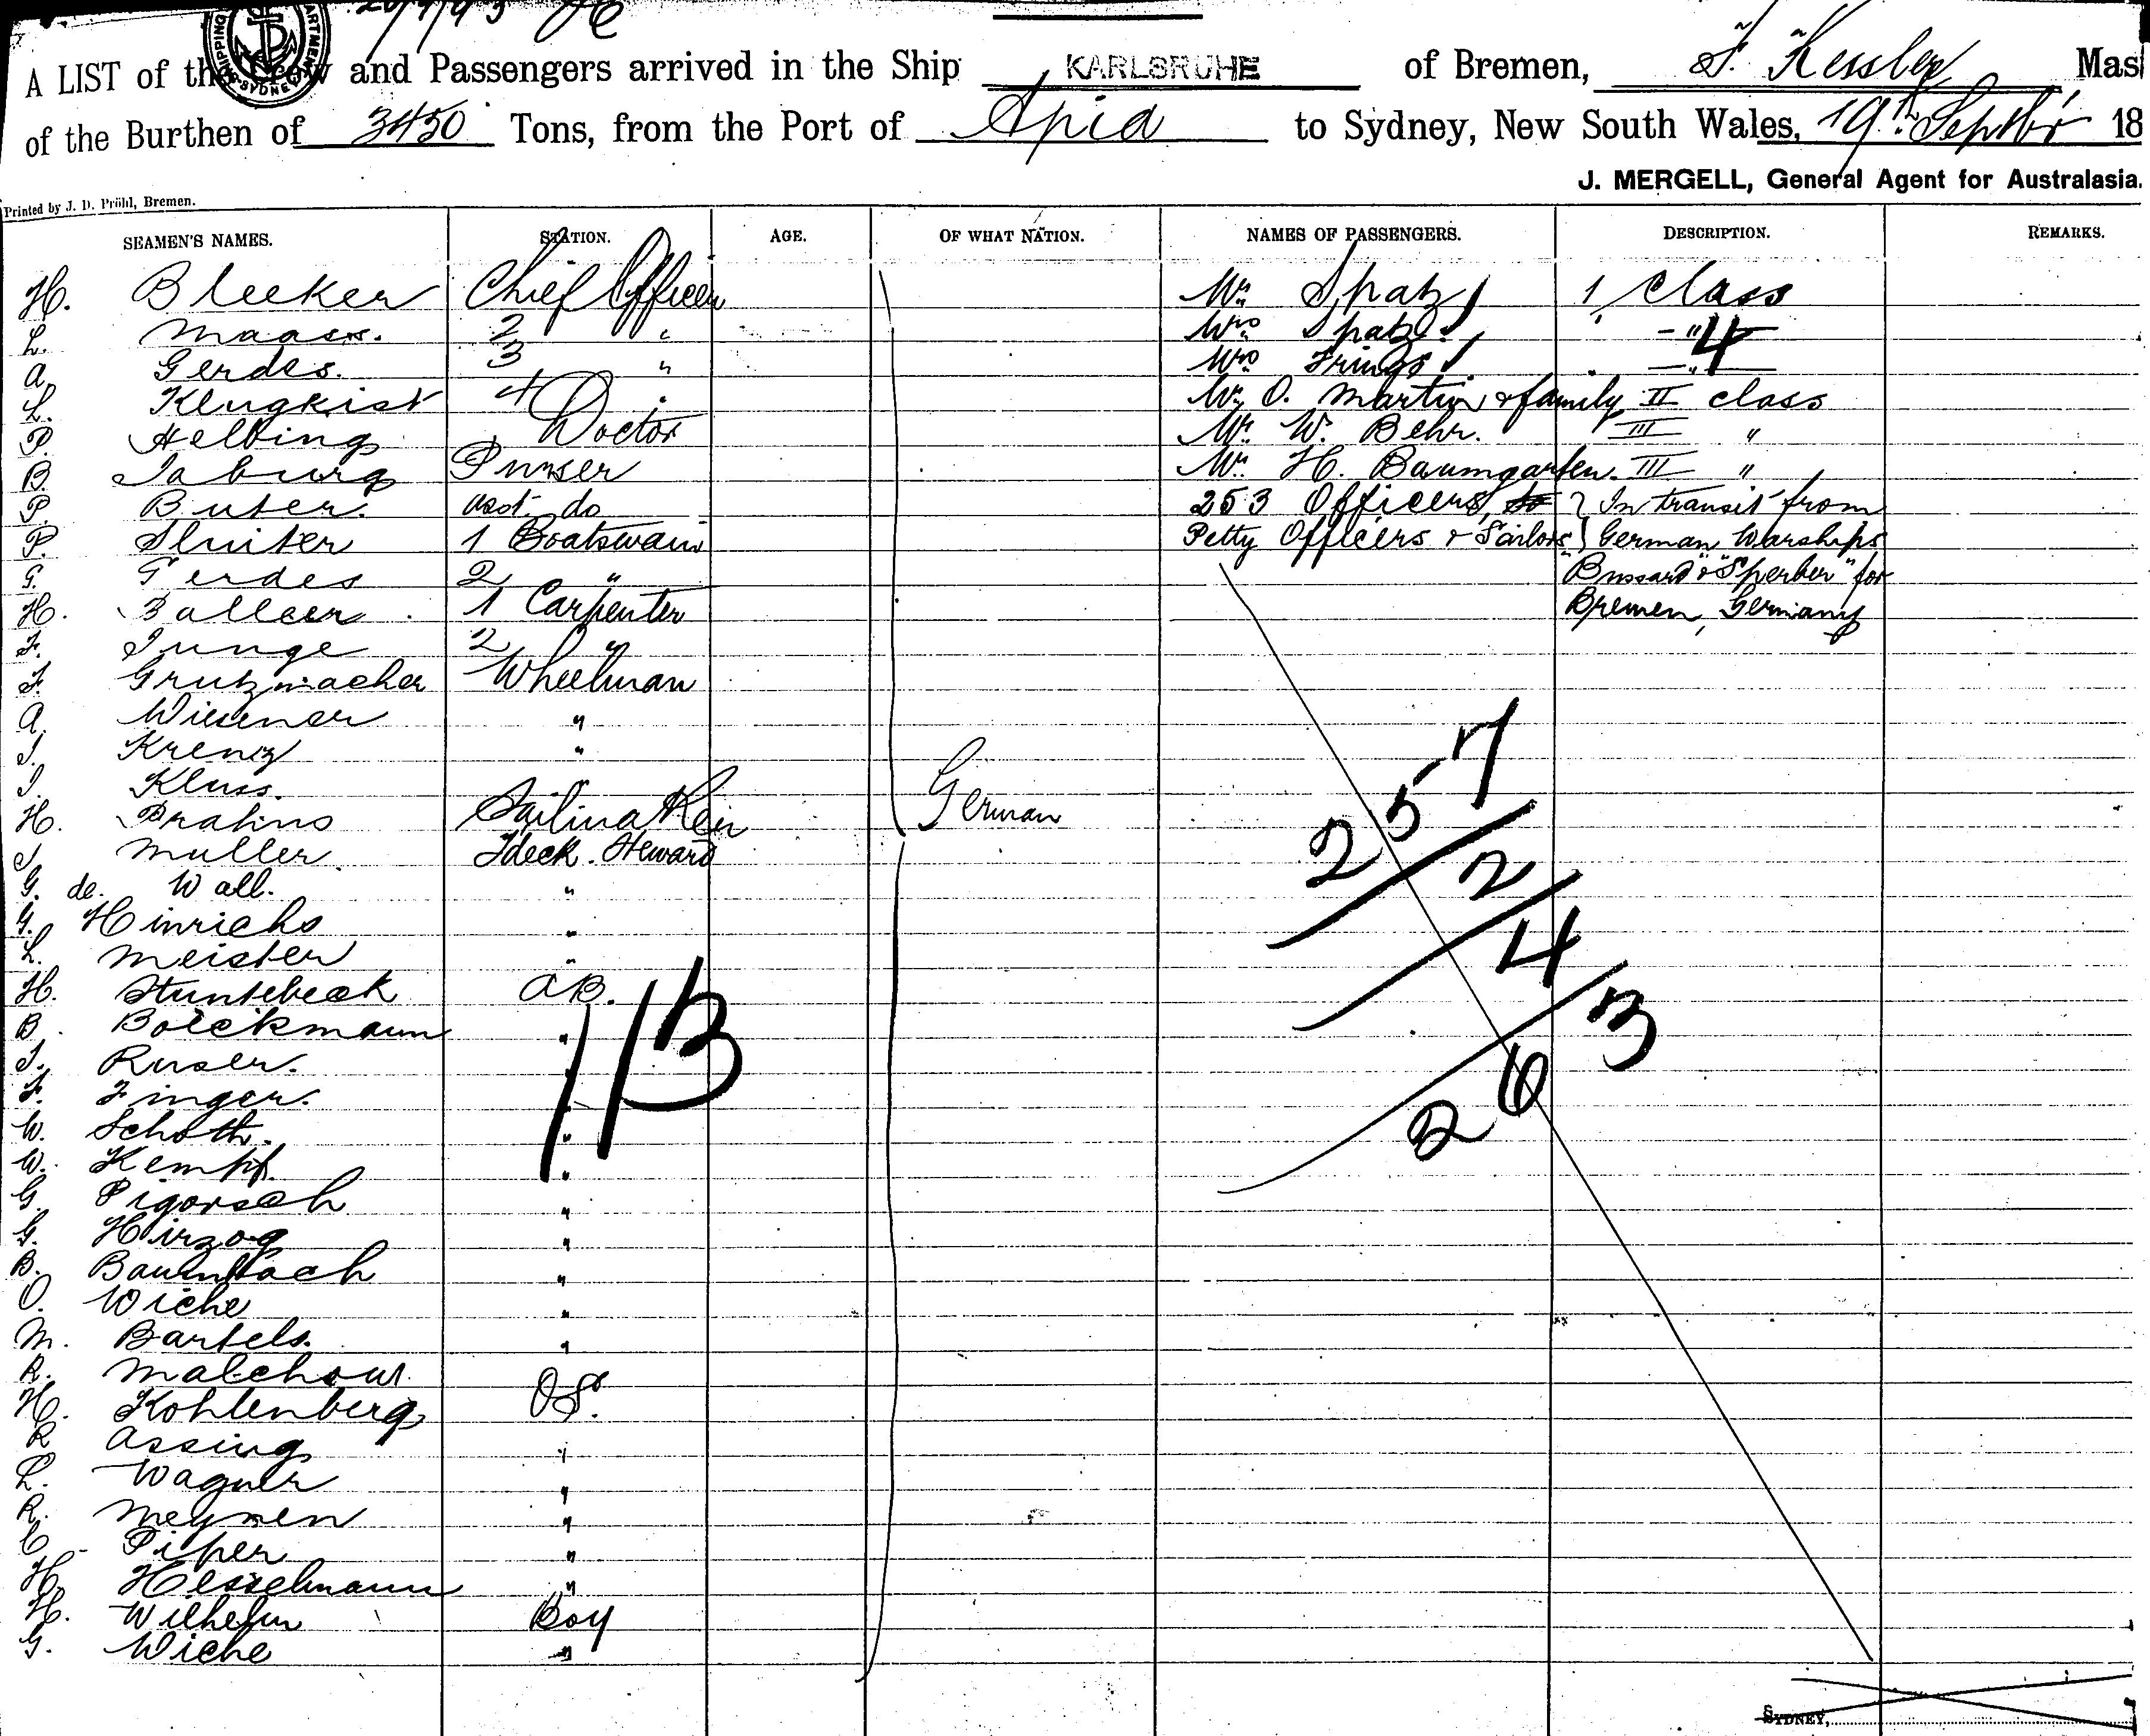 20/9/93
SHIPPING DEPARTMENT SYDNEY
A LIST of the Crew and Passengers arrived in the Ship KARLSRUHE of Bremen, F. Kessler Mas
of the Burthen of 3450 Tons, from the Port of Apia to Sydney, New South Wales, 19th Septbr 18
J. MERGELL, General Agent for Australasia.
Printed by J. D. Pröhl, Bremen.
SEAMEN'S NAMES. STATION. AGE. OF WHAT NATION. NAMES OF PASSENGERS. DESCRIPTION. REMARKS.
H. Bleeker Chief Officer Mr. Spatz 1 class
L. Maass. 2 " Mrs Spatz - " - 4
A. Gerdes. 3 " Mrs Frings - " -
L. Klugkist 4 " Mr. O. Martin & family II class
P. Helbing Doctor Mr. W. Behr. III "
B. Jaburg Purser Mr. H. Baumgarten. III "
P. Buter. asst. do 253 Officers, In transit from
P. Sluiter 1 Boatswain Petty Officers & Sailors German Warships
G. Gerdes 2 " "Bussard" & "Sperber" for
H. Balleer 1 Carpenter Bremen, Germany
F. Junge 2 "
F. Grutzmacher Wheelman
A. Wiesener "
J. Krenz "
J. Kluss. "
H. Brahms German
J. Muller. Steward
G. de. Wall. "
G. Hinrichs "
L. Meister "
H. Stuntebeck AB.
B. Bolckmann "
J. Ruser. "
F. Finger. "
W. Schoth. "
W. Kempf. "
G. Pigorsch "
G. Hirzog "
B. Baumbach "
O. Wiche "
M. Bartels. "
R. Malchow.
H. Kohlenberg OS.
R Assing "
L. Wagner "
R. Meynen "
C. Piper "
H. Hesselmann "
H. Wilhelm Boy
G. Wiche "
113
257
2
4
263
SYDNEY,